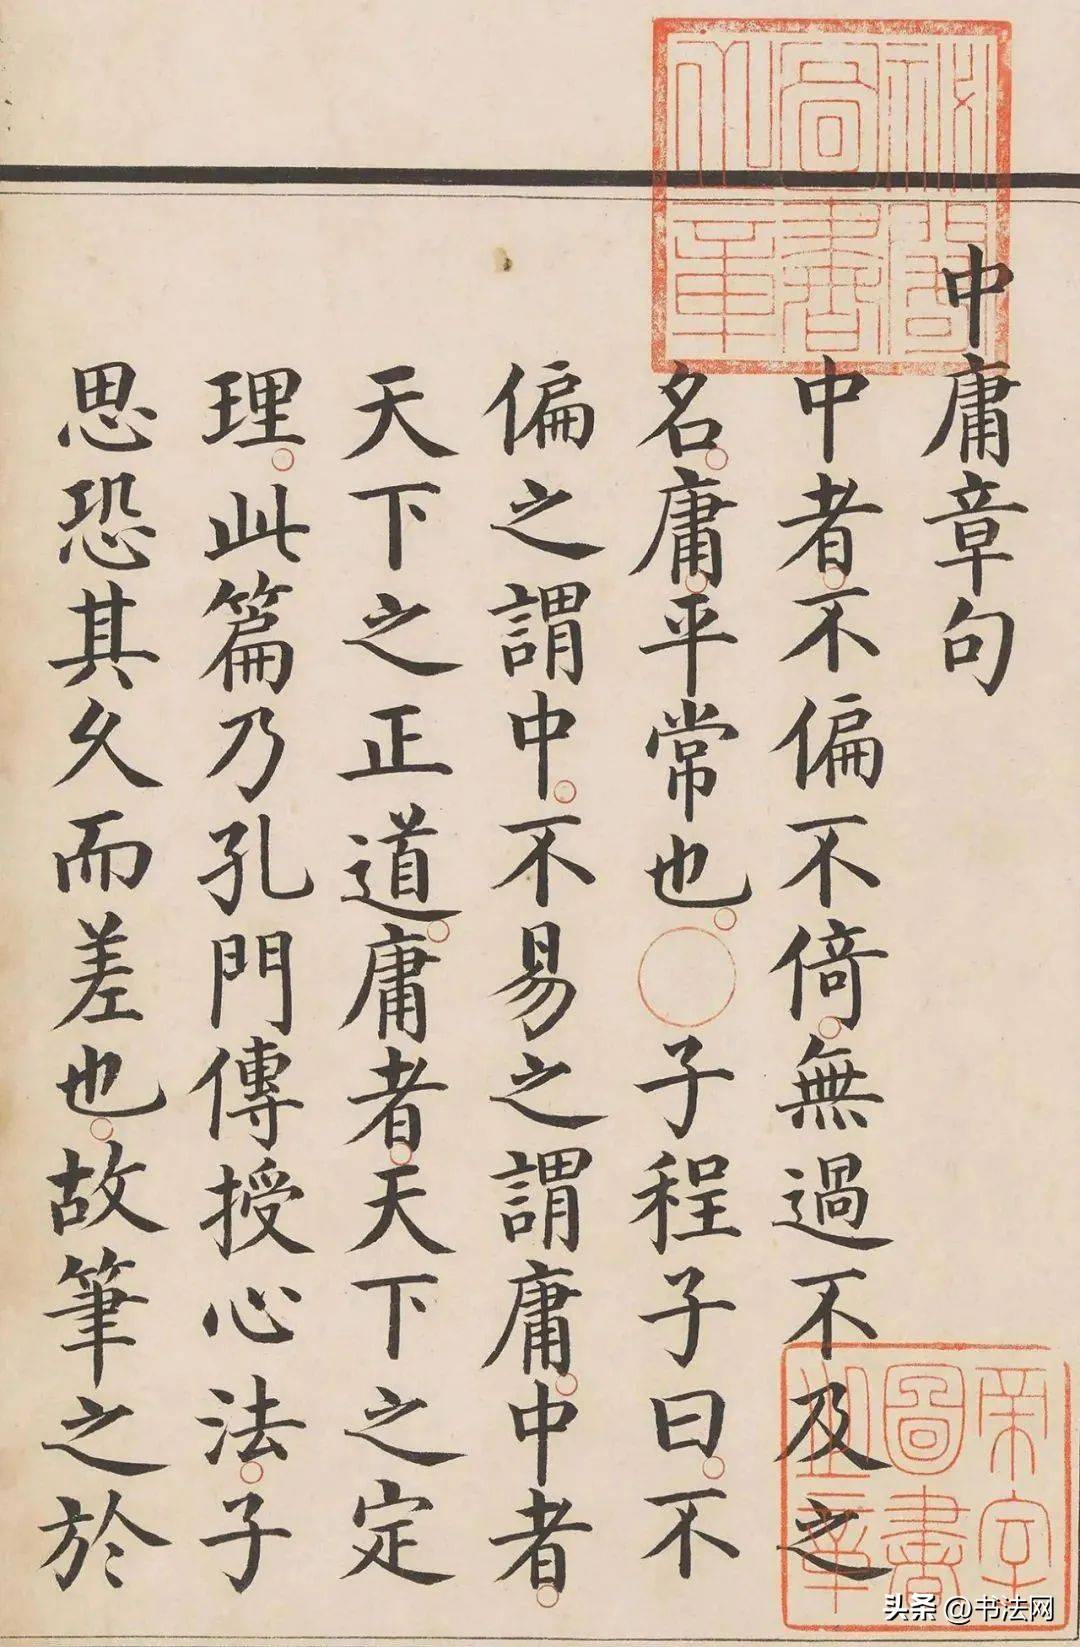 中庸章句
中者。不偏不倚。無過不及之
名。庸。平常也。○子程子曰。不
偏之謂中。不易之謂庸。中者。
天下之正道。庸者。天下之定
理。此篇乃孔門傳授心法。子
思恐其久而差也。故筆之於
秘閣圖書之章
帝室圖書之章
头条 @书法网